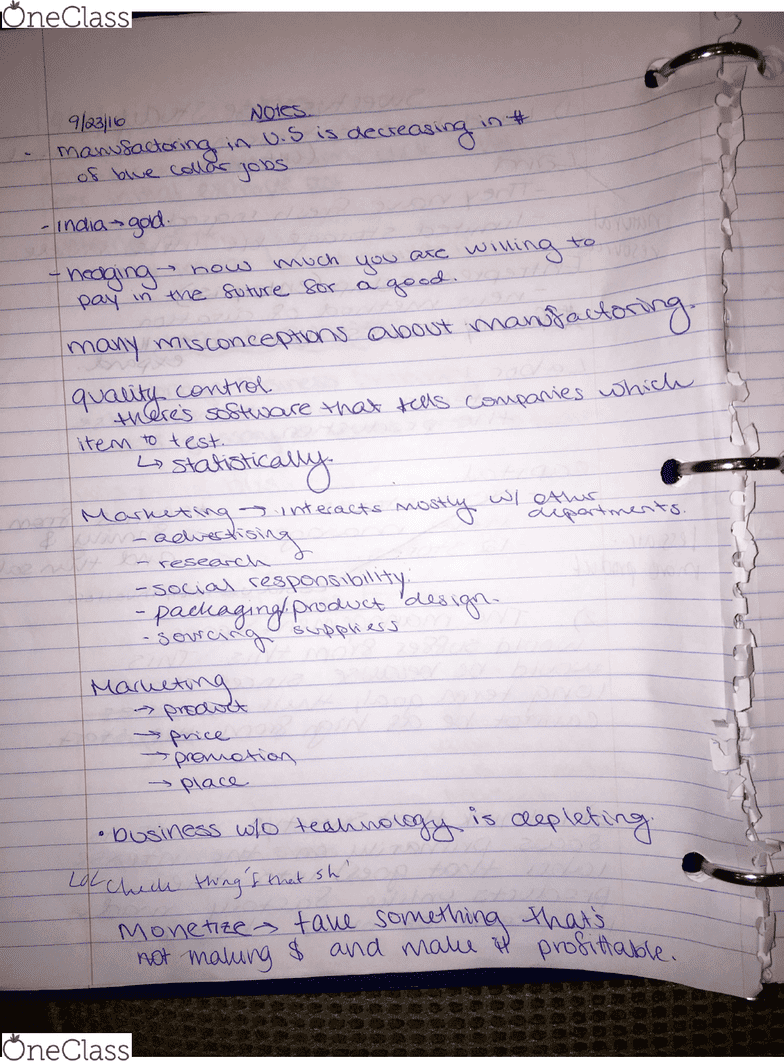 OneClass
9/23/16
Notes.
- manufactoring in U.S is decreasing in #
of blue collar jobs
- India → gold.
- hedging → how much you are willing to
pay in the future for a good.
many misconceptions about manufactoring.
quality control
there's software that tells companies which
item to test.
↳ statistically.
Marketing → interacts mostly w/ other
departments.
- advertising
- research
- social responsibility.
- packaging/product design.
- sourcing suppliers
Marketing
→ product
→ price
→ promotion
→ place
• business w/o technology is depleting.
LOL check thing's that sh'
Monetize → take something that's
not making $ and make it profittable.
OneClass